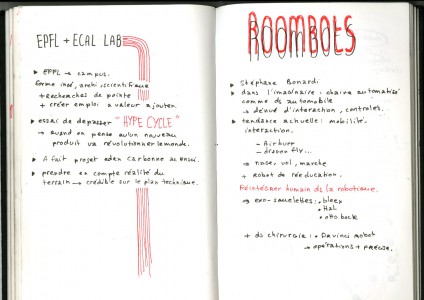 EPFL + ECAL LAB
▸ EPFL → campus:
forme insé, archi, scientifique
+ recherches de pointe
+ créer emploi à valeur ajoutée.
▸ essai de dépasser "HYPE CYCLE"
→ quand on pense qu'un nouveau
produit va révolutionner le monde.
▸ A fait projet eden carbonne au
▸ prendre en compte réalité du
terrain → crédible sur le plan technique.
ROOMBOTS
▸ Stéphane Bonardi
▸ dans l'imaginaire: chaire automatisée
comme ds automobile
→ dénué d'interaction, contrôles.
▸ tendance actuelle: mobilité
interaction.
- Air burr
- dragon fly...
→ nage, vol, marche
+ Robot de rééducation.
Réintégrer humain ds la robotique.
→ exo-squelettes: • bleex
• Hal
• otto bock
+ ds chirurgie: • Davinci robot
→ opérations + précise.